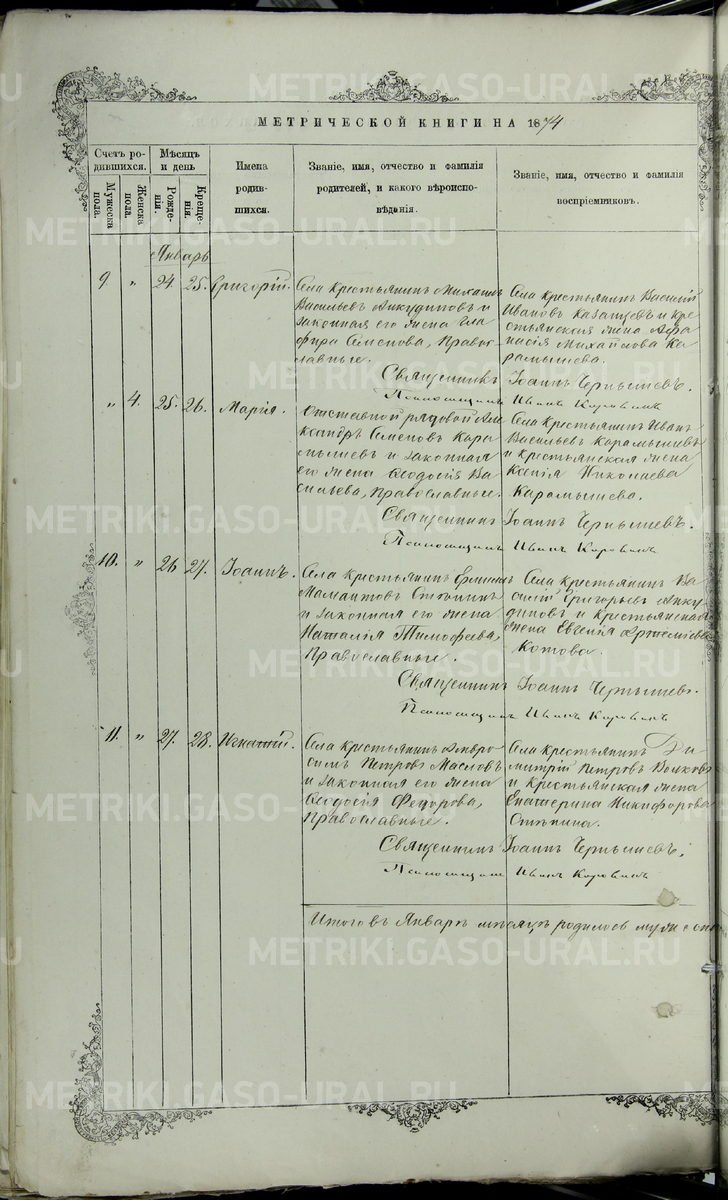 МЕТРИЧЕСКОЙ КНИГИ НА 1874
Счетъ ро-
дившихся.
Мужеска
пола.
Женска
пола.
Мѣсяцъ
и день
Рожде-
нія.
Креще-
нія.
Имена
родив-
шихся.
Званіе, имя, отчество и фамилія
родителей, и какого вѣроиспо-
вѣданія.
Званіе, имя, отчество и фамилія
воспріемниковъ.
Январь
9 " 24. 25. Григорій.
Села крестьянинъ Михаилъ
Васильевъ Анкудиновъ и
законная его жена Гла
фира Семенова, Право
славные.
Села крестьянинъ Василій
Ивановъ Казанцевъ и кре
стьянская жена Афа
насія Михайлова Ка
рамышева.
Священникъ Іоаннъ Чернышевъ.
Псаломщикъ Иванъ Коровинъ
" 4. 25. 26. Марія.
Отставной рядовой Але
ксандръ Семеновъ Кара
мышевъ и законная
его жена Ѳеодосія Ва
сильева, Православные.
Села крестьянинъ Иванъ
Васильевъ Карамышевъ
и крестьянская жена
Ксенія Николаева
Карамышева.
Священникъ Іоаннъ Чернышевъ.
Псаломщикъ Иванъ Коровинъ
10. " 26 27. Іоаннъ.
Села крестьянинъ
Мамантовъ
и законная его жена
Наталія Тимофеева,
Православные.
Села крестьянинъ Ва
силій Григорьевъ Анку
диновъ и крестьянская
жена Евгенія Артеміева
Котова.
Священникъ Іоаннъ Чернышевъ.
Псаломщикъ Иванъ Коровинъ
11. " 27. 28. Игнатій.
Села крестьянинъ Амвро
симъ Петровъ Масловъ
и законная его жена
Ѳеодосія Федорова,
Православные.
Села крестьянинъ Ди
митрій Петровъ Волковъ
и крестьянская жена
Екатерина Никифорова
Стяпина.
Священникъ Іоаннъ Чернышевъ.
Псаломщикъ Иванъ Коровинъ
Итого въ Январѣ мѣсяцѣ родилось
METRIKI.GASO-URAL.RU